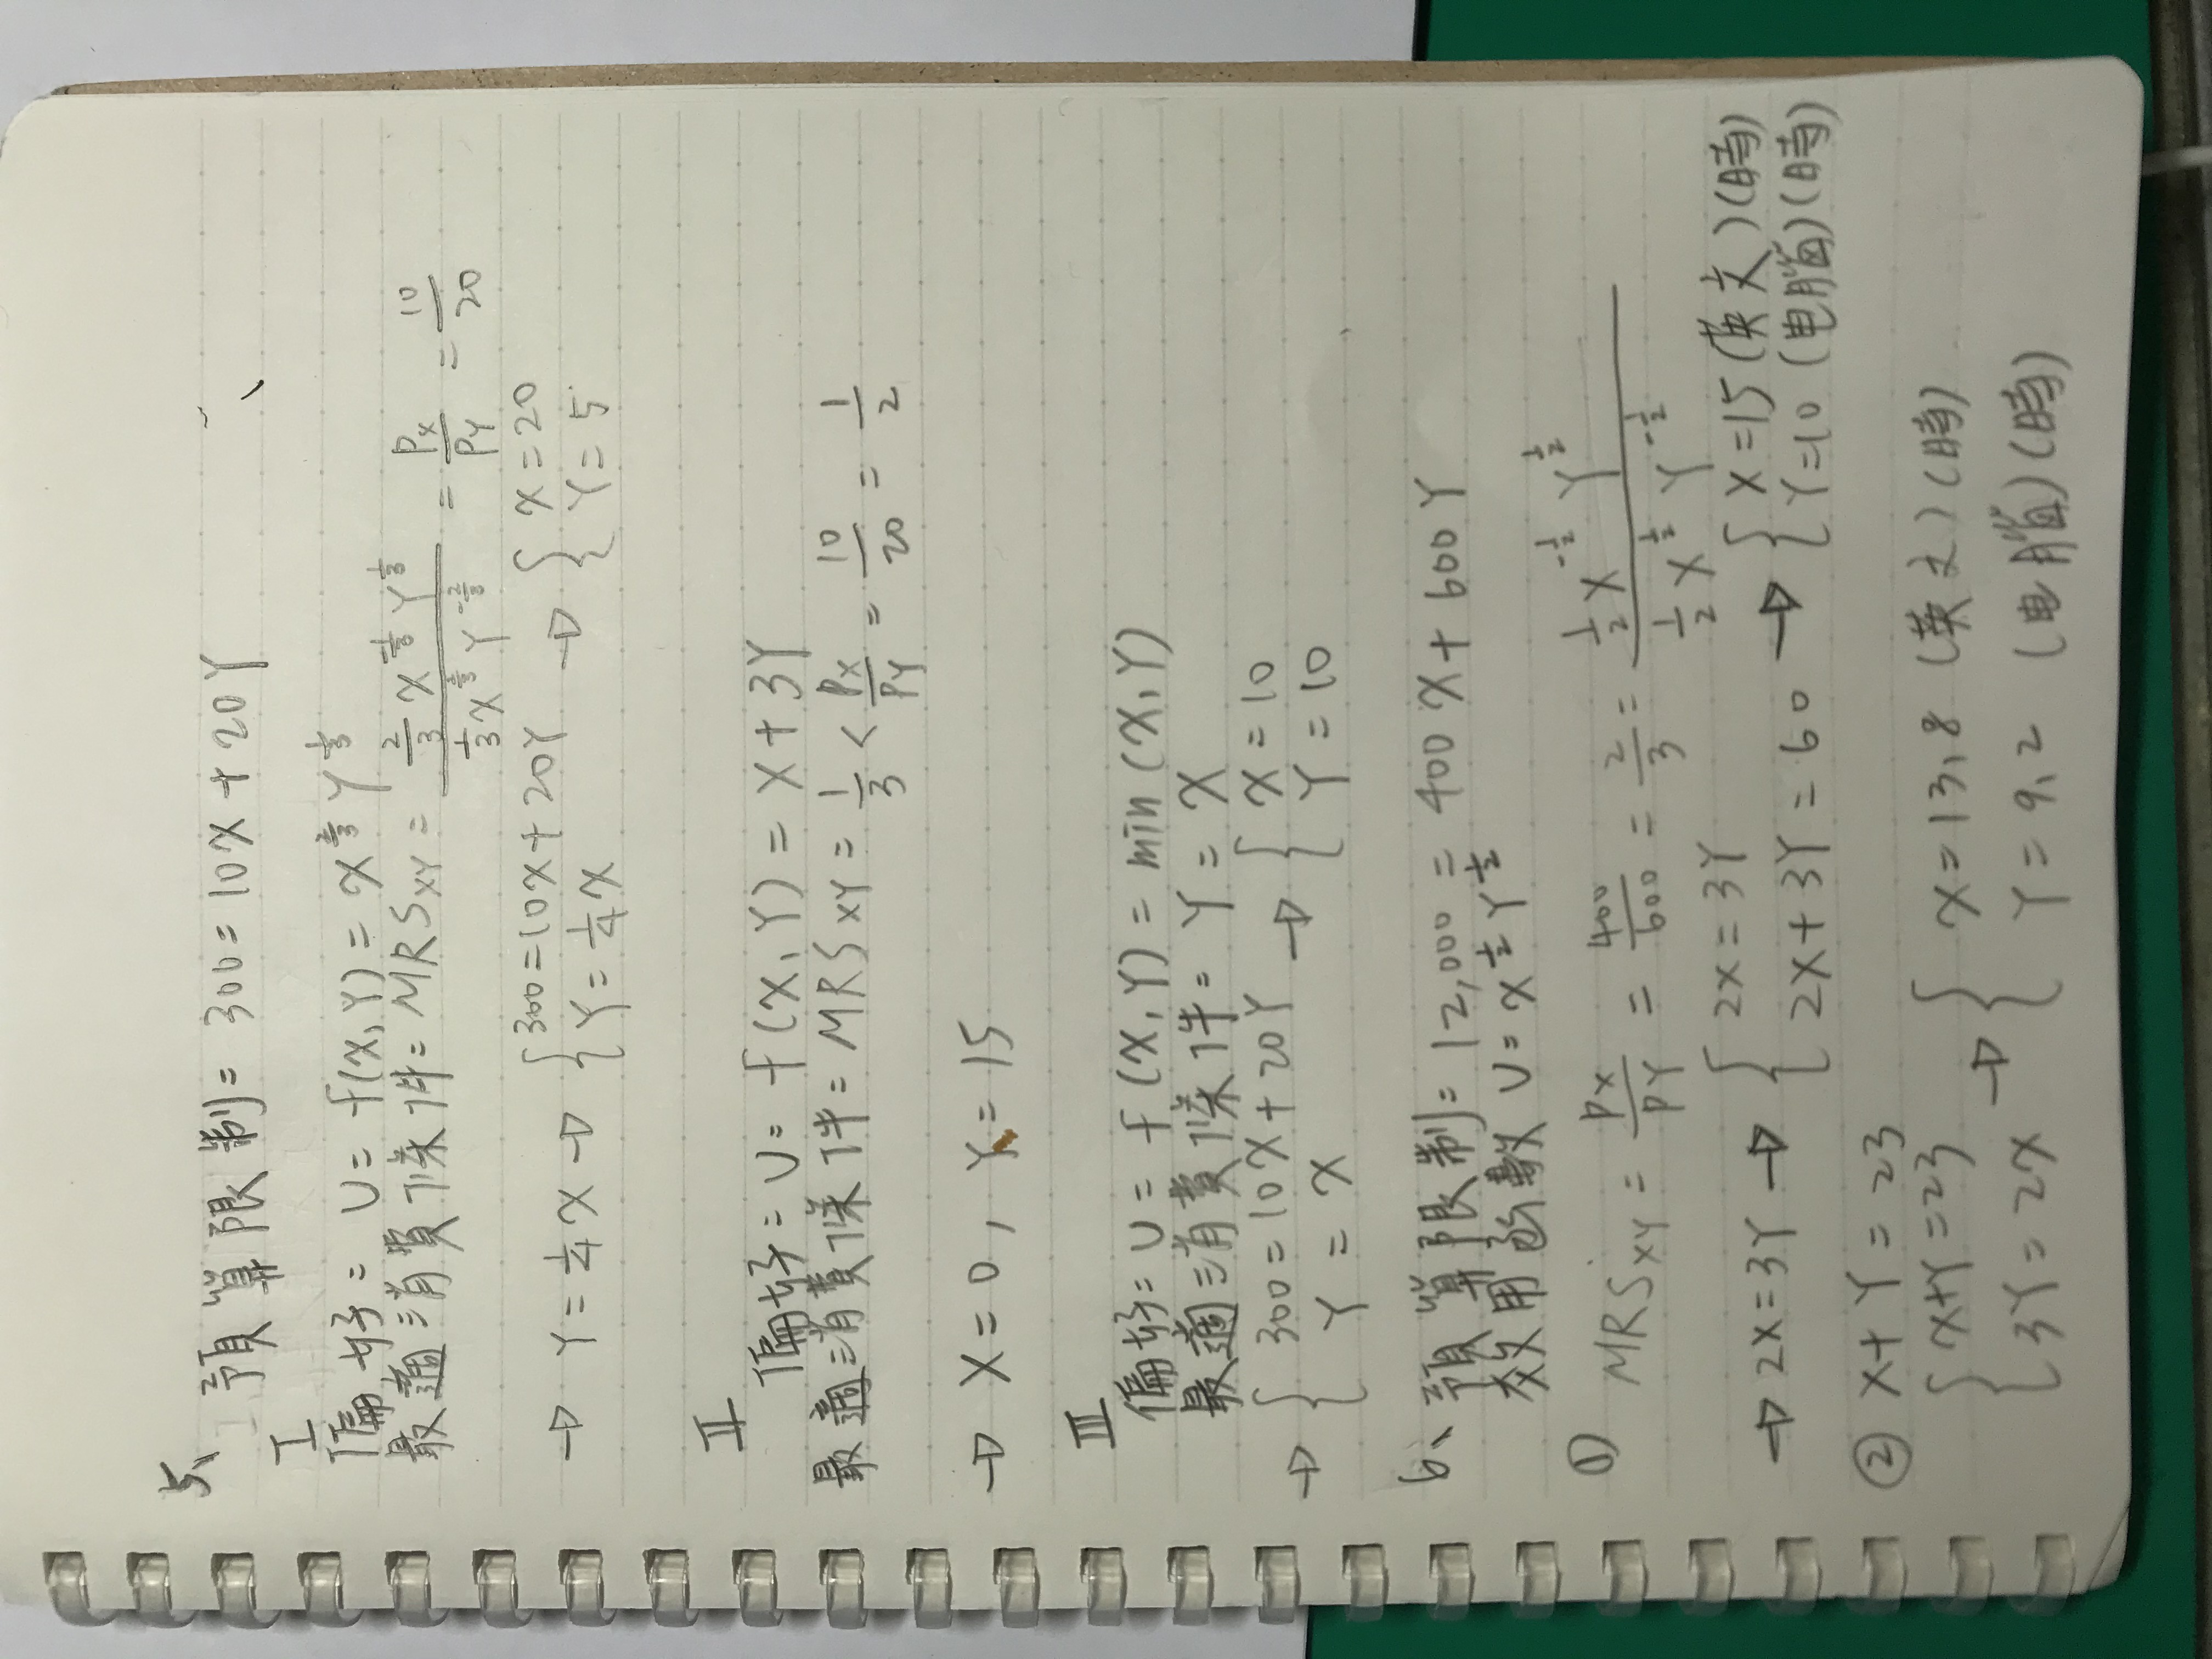 5、
預算限制= 300=10X+20Y
I
偏好= U= f(X,Y)= X^{2/3} Y^{1/3}
最適消費條件= MRS_{XY} = \frac{\frac{2}{3} X^{-\frac{1}{3}} Y^{\frac{1}{3}}}{\frac{1}{3} X^{\frac{2}{3}} Y^{-\frac{2}{3}}} = \frac{P_X}{P_Y} = \frac{10}{20}
→ Y=\frac{1}{4}X → { 300=10X+20Y → { X=20
Y=\frac{1}{4}X Y=5
II
偏好= U= f(X,Y)= X+3Y
最適消費條件= MRS_{XY} = \frac{1}{3} < \frac{P_X}{P_Y} = \frac{10}{20} = \frac{1}{2}
→ X=0, Y=15
III
偏好= U= f(X,Y)= min(X,Y)
最適消費條件= Y=X
→ { 300=10X+20Y → { X=10
Y=X Y=10
6、
預算限制= 12,000 = 400X+600Y
效用函數 U= X^{1/2} Y^{1/2}
① MRS_{XY} = \frac{P_X}{P_Y} = \frac{400}{600} = \frac{2}{3} = \frac{\frac{1}{2} X^{-\frac{1}{2}} Y^{\frac{1}{2}}}{\frac{1}{2} X^{\frac{1}{2}} Y^{-\frac{1}{2}}}
→ 2X=3Y → { 2X=3Y → { X=15 (英文)(時)
2X+3Y=60 Y=10 (电腦)(時)
② X+Y=23
{ X+Y=23 → { X=13.8 (英文)(時)
3Y=2X Y=9.2 (电腦)(時)